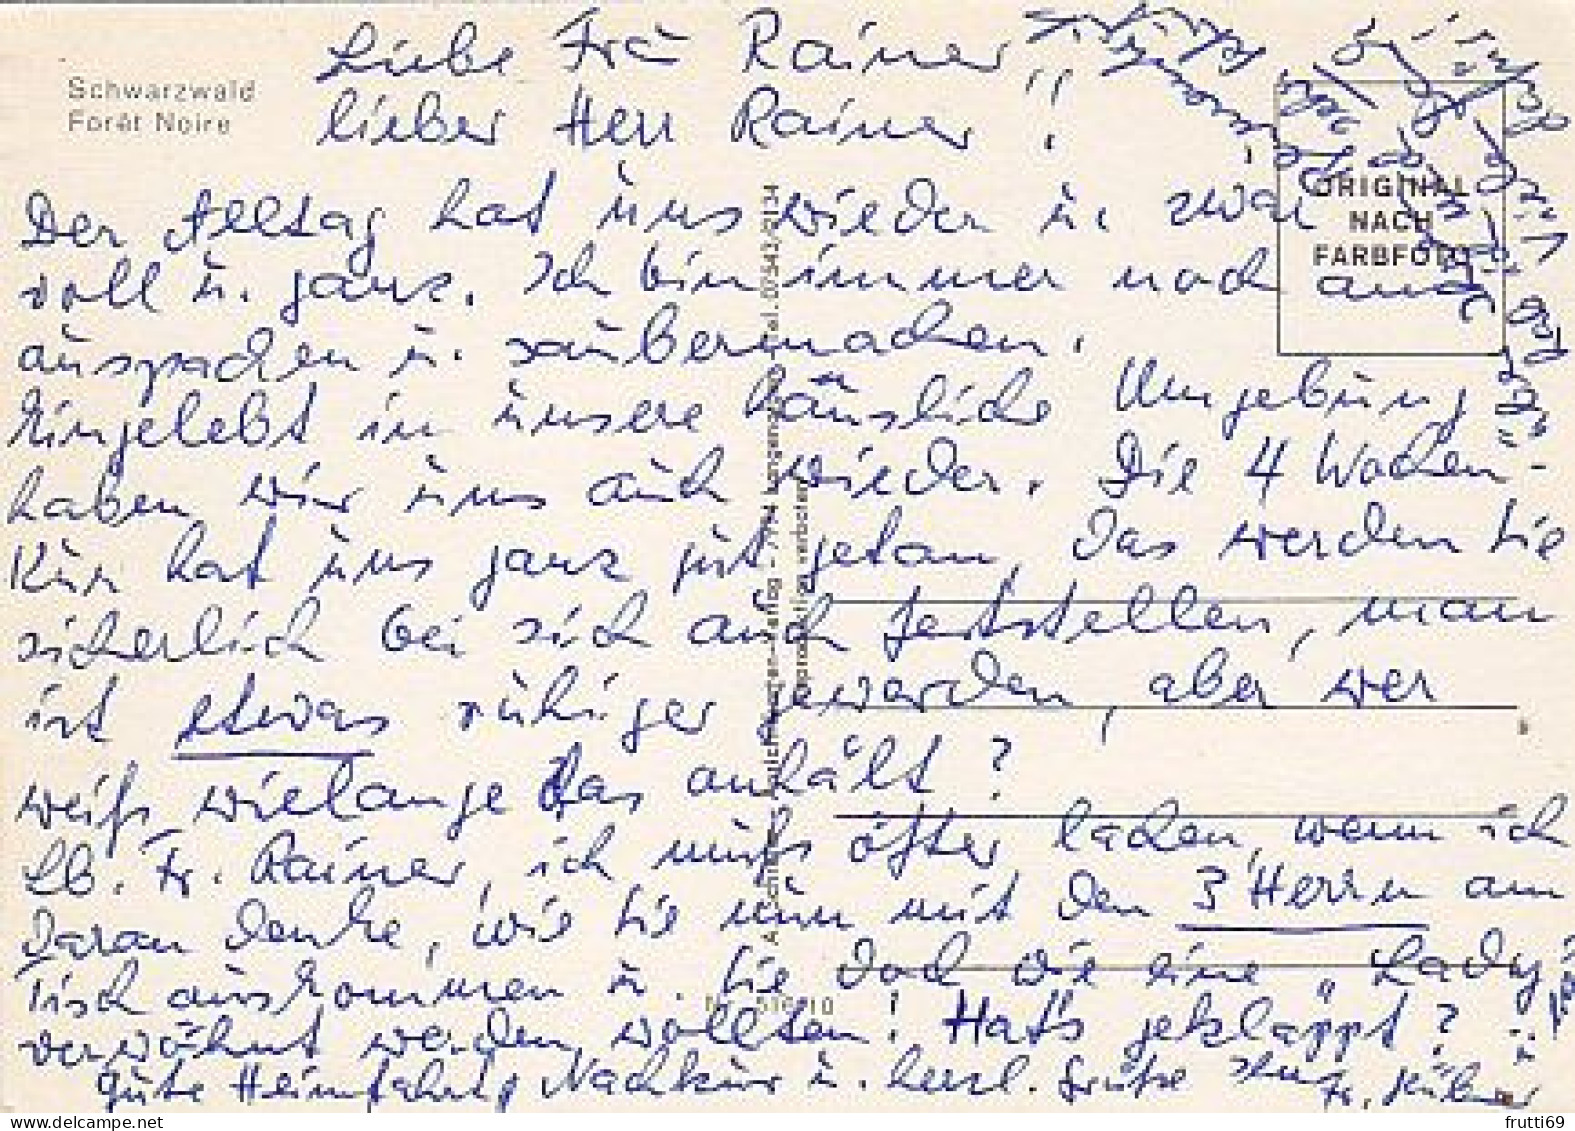 Schwarzwald
Forêt Noire
Liebe Fr. Rainer,
lieber Herr Rainer!
ORIGINAL
NACH
FARBFOTO
Der Alltag hat uns wieder u. zwar
voll u. ganz. Ich bin immer noch am
auspacken u. saubermachen.
Eingelebt in unsere häusliche Umgebung
haben wir uns auch wieder. Die 4 Wochen-
Kur hat uns ganz gut getan. Das werden Sie
sicherlich bei sich auch feststellen, man
ist etwas ruhiger geworden, aber wer
weiß, wielange das anhält?
Lb. Fr. Rainer, ich muß öfter lachen, wenn ich
daran denke, wie Sie nun mit den 3 Herrn am
Tisch auskommen u. Sie doch wie eine "Lady"
verwöhnt werden wollten! Hat's geklappt?
Gute Heimfahrt, Nachkur u. herzl. Grüße Ihre Fr.
frutti69